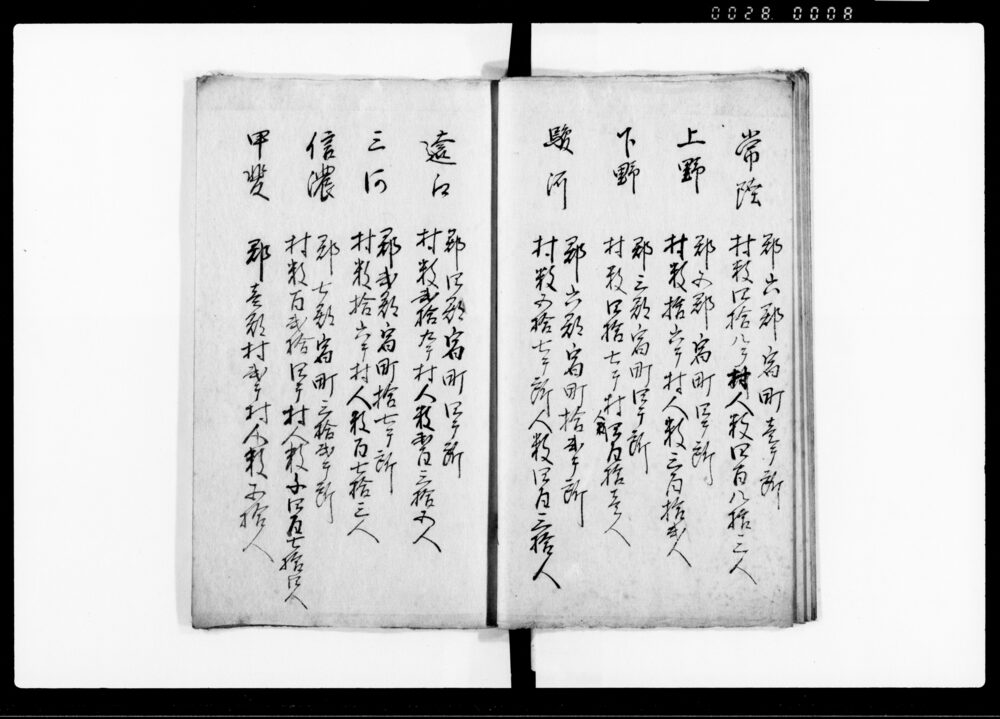 0028 0008
常陸
郡六郡宿町壱ケ所
村数四拾八ケ村人数四百八拾三人
上野
郡五郡宿町四ケ所
村数拾六ケ村人数三百拾弐人
下野
郡三郡宿町四ケ所
村数四拾七ケ村人数四百拾壱人
駿河
郡六郡宿町拾弐ケ所
村数五拾七ケ所人数四百三拾人
遠江
郡四郡宿町四ケ所
村数弐拾九ケ村人数弐百三拾五人
三河
郡弐郡宿町拾七ケ所
村数拾六ケ村人数百七拾三人
信濃
郡七郡宿町三拾弐ケ所
村数百弐拾四ケ村人数千四百七拾四人
甲斐
郡壱郡村弐ケ村人数五拾人